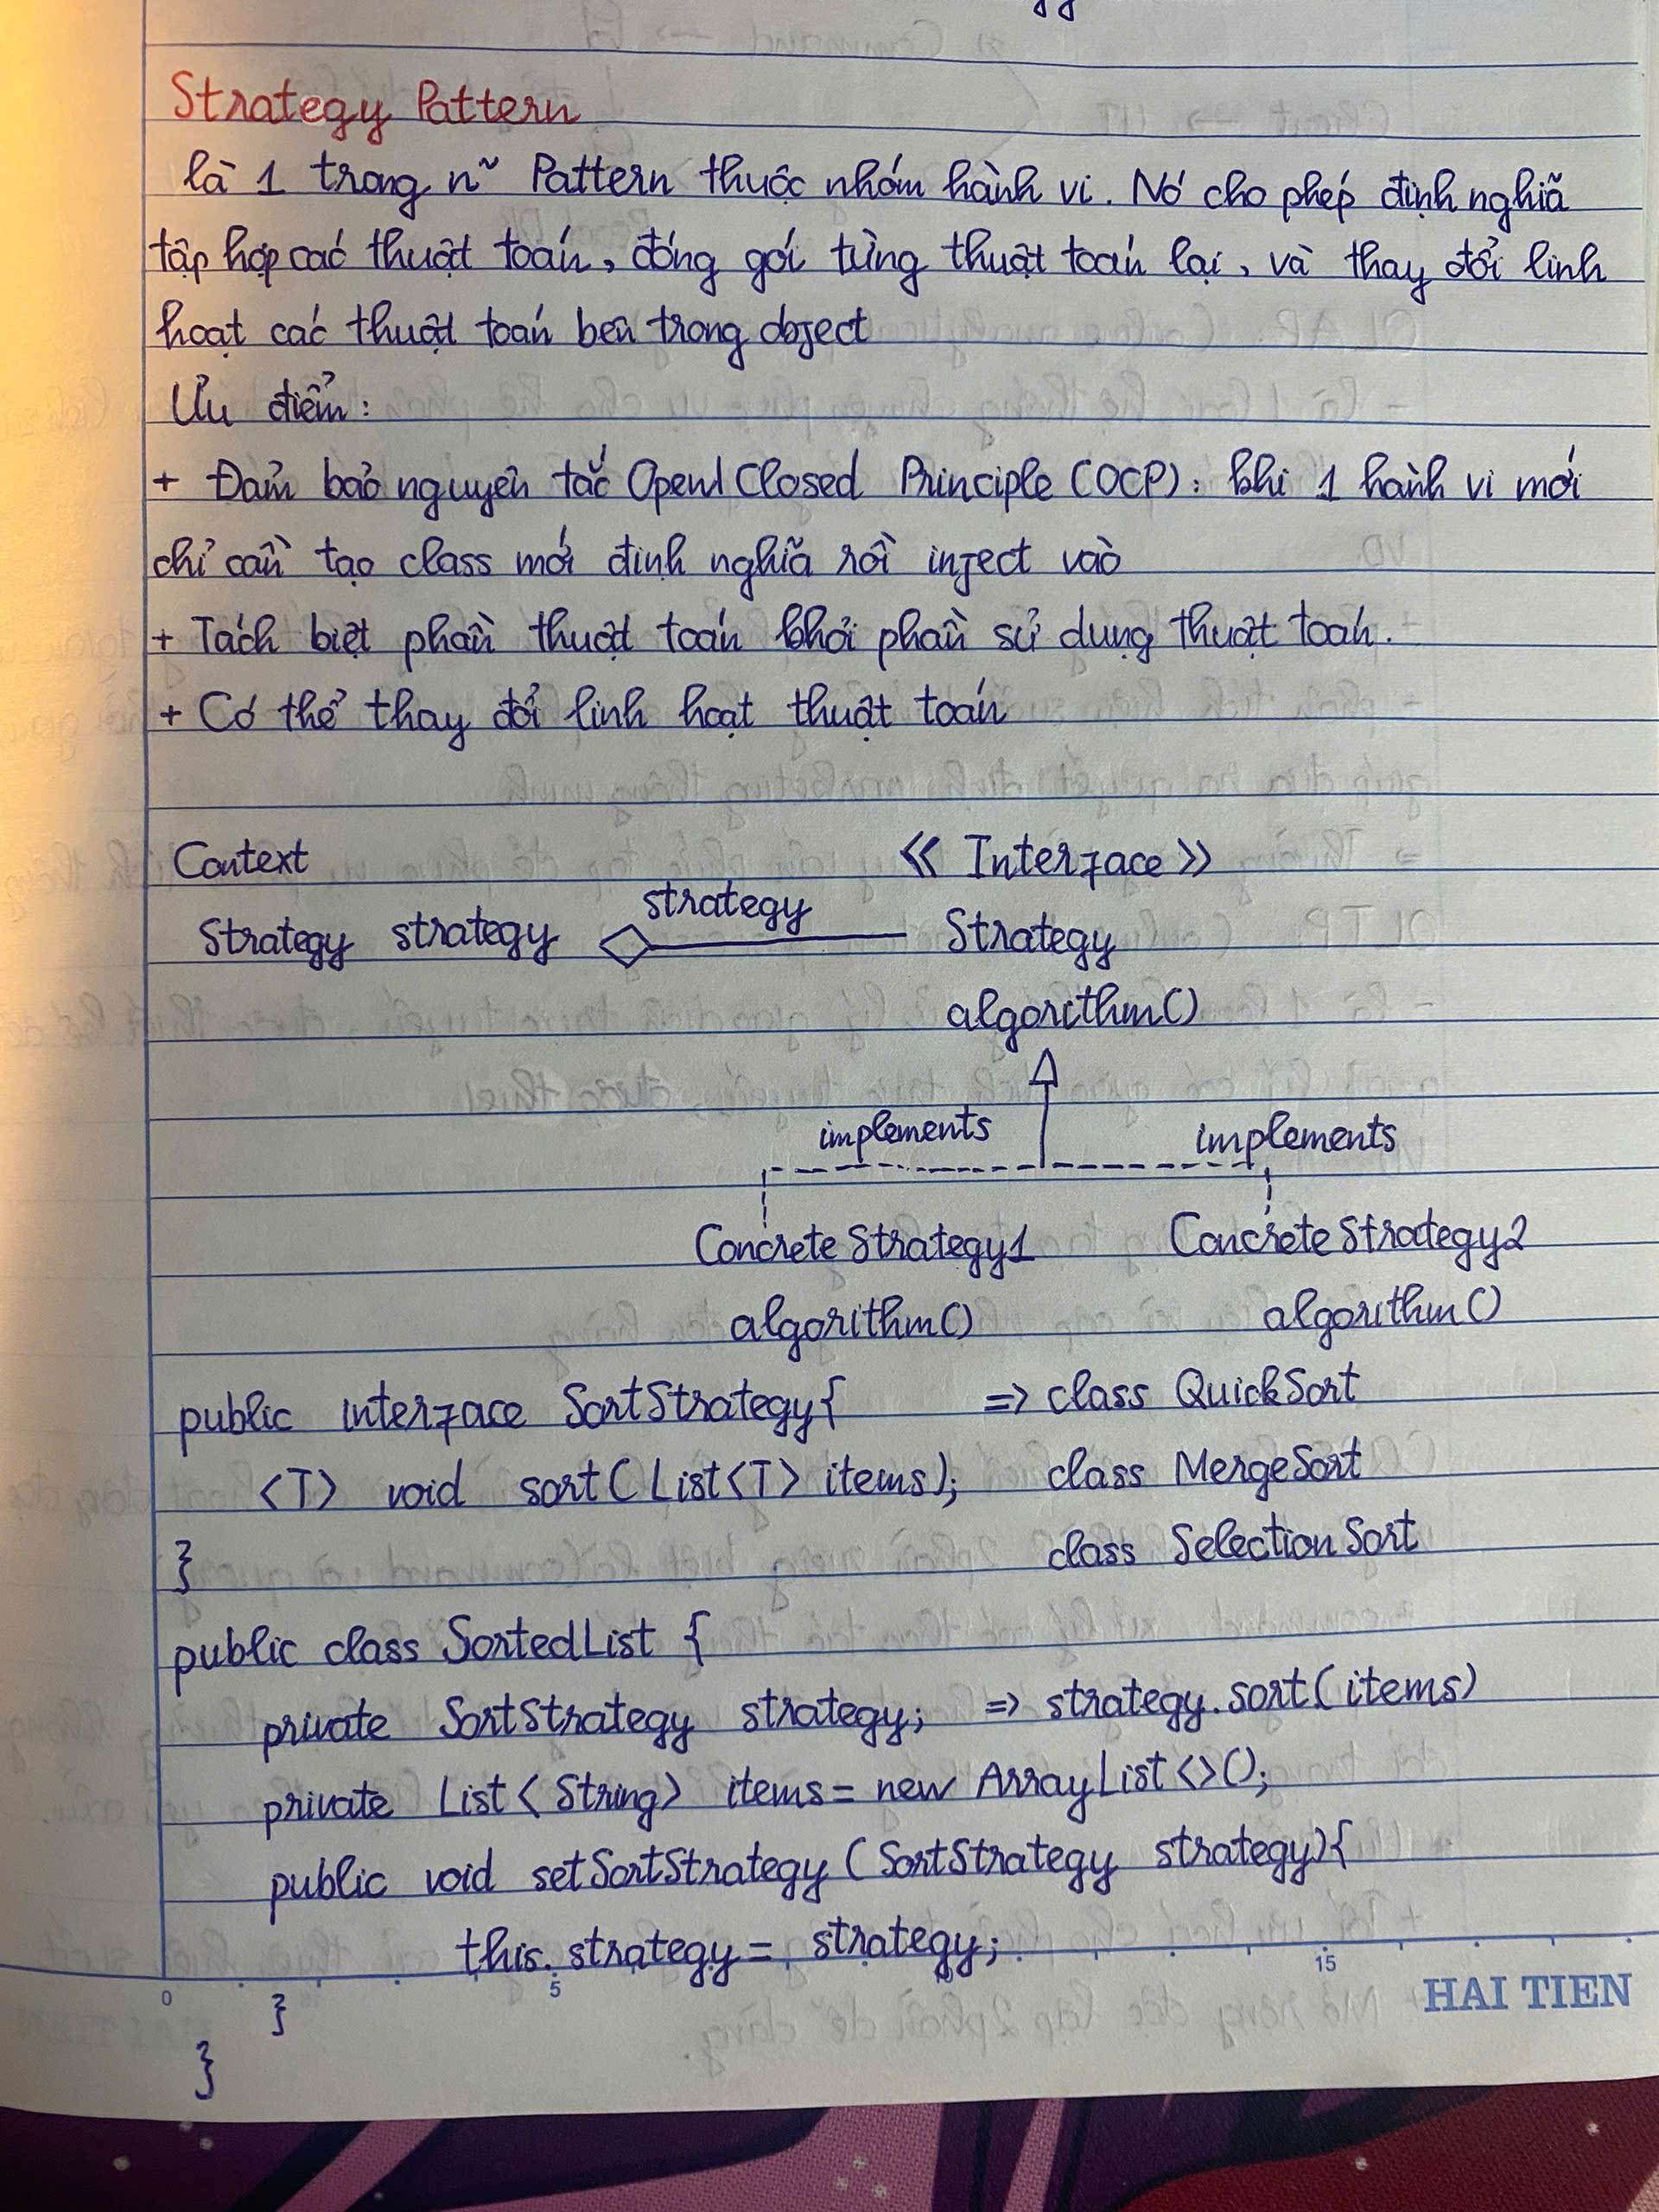 Strategy Pattern
là 1 trong n~ Pattern thuộc nhóm hành vi. Nó cho phép định nghĩa
tập hợp các thuật toán, đóng gói từng thuật toán lại, và thay đổi linh
hoạt các thuật toán bên trong object
Ưu điểm:
+ Đảm bảo nguyên tắc Open/Closed Principle (OCP): khi 1 hành vi mới
chỉ cần tạo class mới định nghĩa rồi inject vào
+ Tách biệt phần thuật toán khỏi phần sử dụng thuật toán.
+ Có thể thay đổi linh hoạt thuật toán
Context << Interface >>
Strategy strategy strategy Strategy
algorithm()
implements implements
ConcreteStrategy1 ConcreteStrategy2
algorithm() algorithm()
public interface SortStrategy{ => class QuickSort
<T> void sort(List<T> items); class MergeSort
} class SelectionSort
public class SortedList {
private SortStrategy strategy; => strategy.sort(items)
private List<String> items = new ArrayList<>();
public void setSortStrategy (SortStrategy strategy){
this.strategy = strategy;
0 5 15 HAI TIEN
}
}